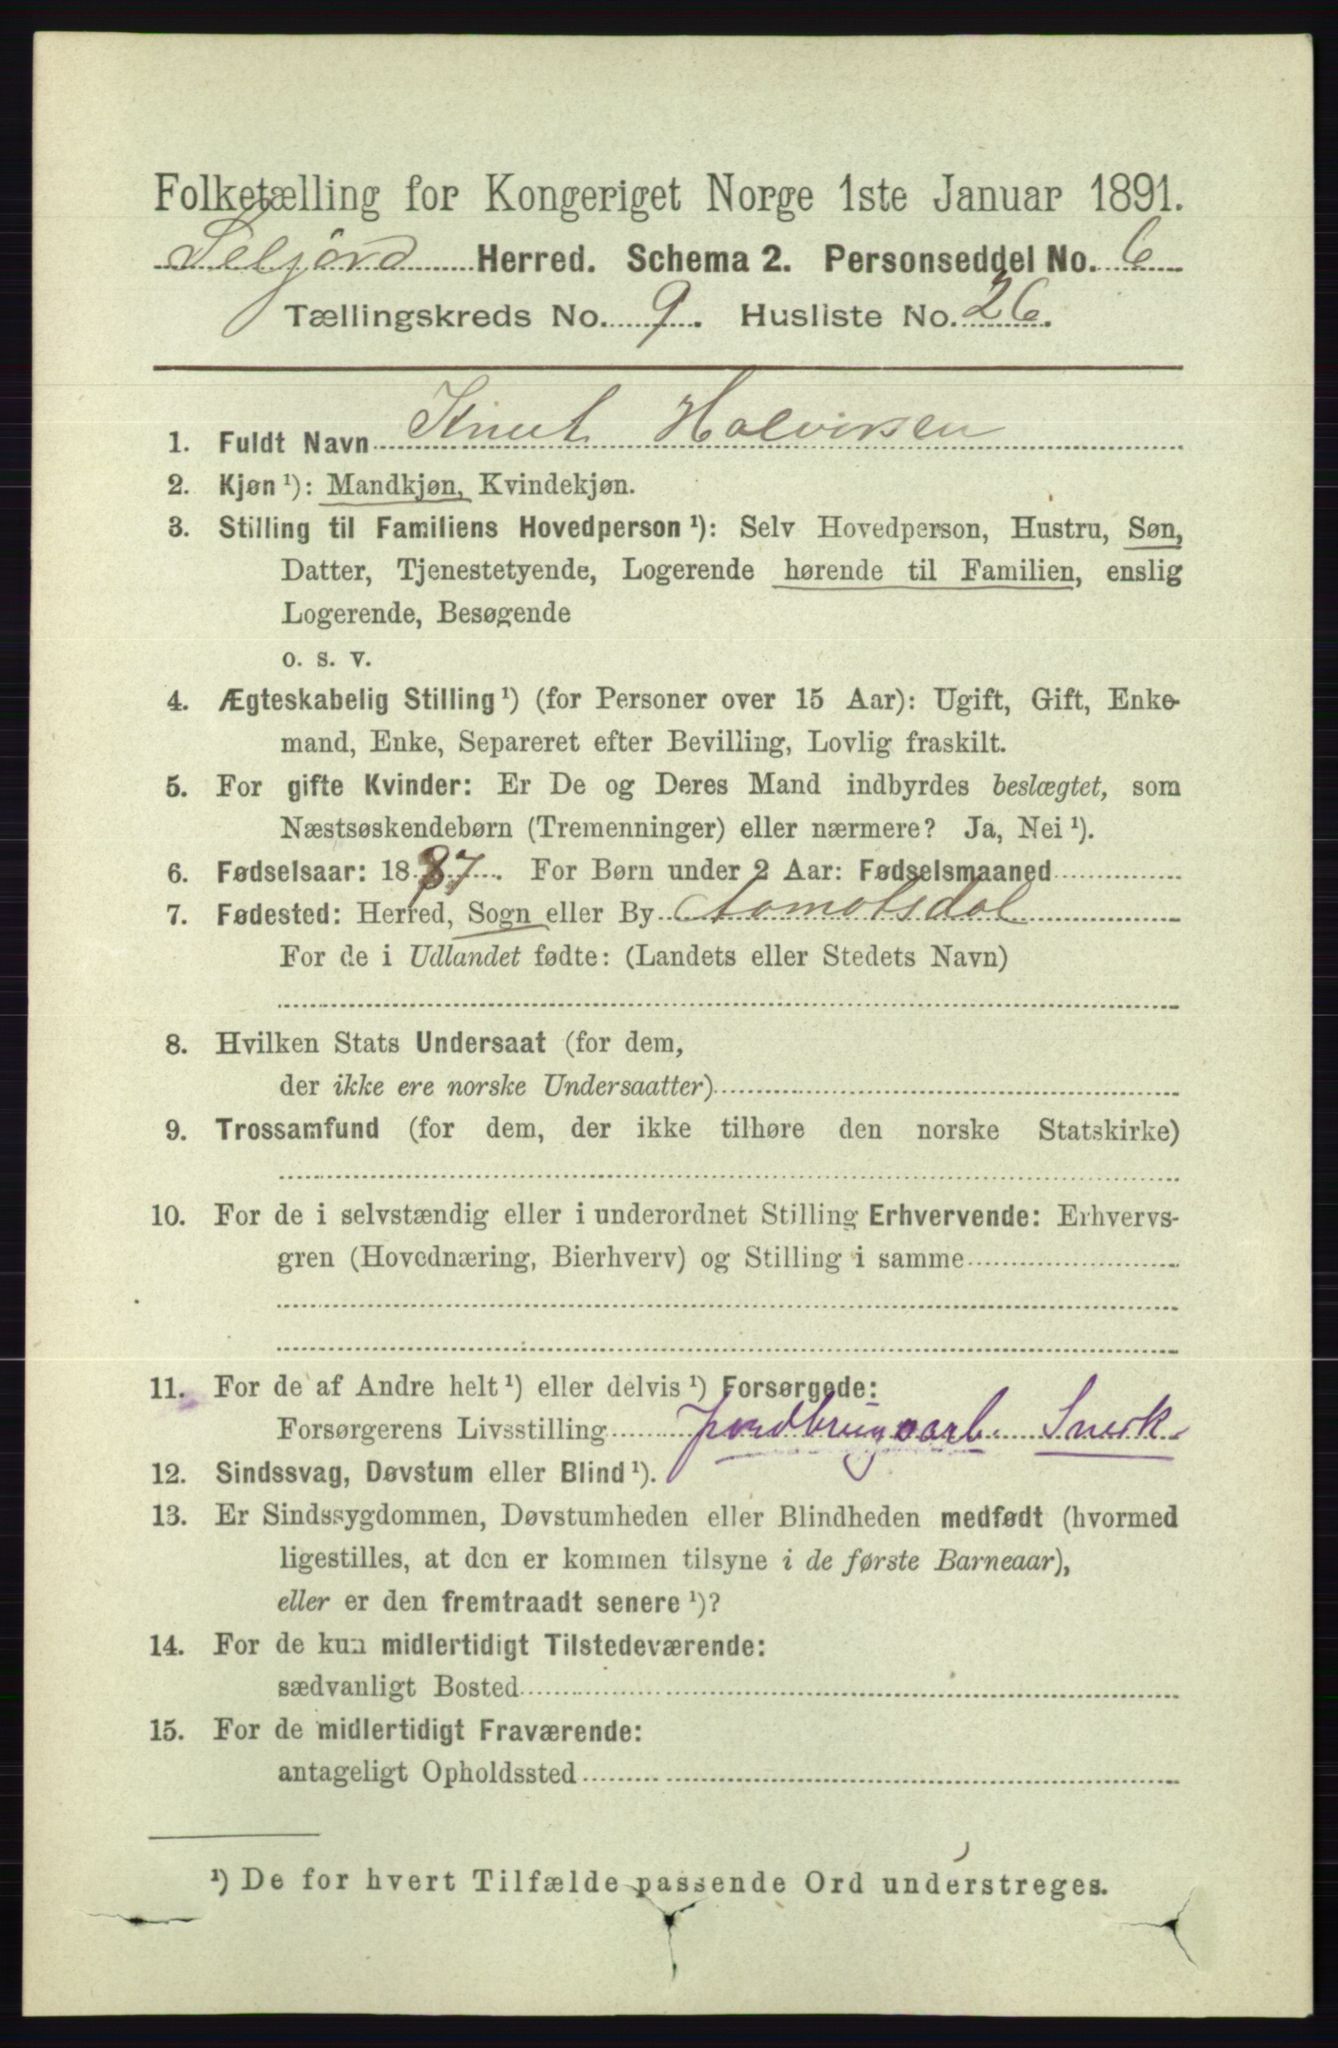 Folketælling for Kongeriget Norge 1ste Januar 1891.
Seljord Herred. Schema 2. Personseddel No. 6
Tællingskreds No. 9. Husliste No. 26.
1. Fuldt Navn Knut Halvorsen
2. Kjøn ¹): Mandkjøn, Kvindekjøn.
3. Stilling til Familiens Hovedperson ¹): Selv Hovedperson, Hustru, Søn,
Datter, Tjenestetyende, Logerende hørende til Familien, enslig
Logerende, Besøgende
o. s. v.
4. Ægteskabelig Stilling ¹) (for Personer over 15 Aar): Ugift, Gift, Enke-
mand, Enke, Separeret efter Bevilling, Lovlig fraskilt.
5. For gifte Kvinder: Er De og Deres Mand indbyrdes beslægtet, som
Næstsøskendebørn (Tremenninger) eller nærmere? Ja, Nei ¹).
6. Fødselsaar: 1887. For Børn under 2 Aar: Fødselsmaaned
7. Fødested: Herred, Sogn eller By Aamotsdal
For de i Udlandet fødte: (Landets eller Stedets Navn)
8. Hvilken Stats Undersaat (for dem,
der ikke ere norske Undersaatter)
9. Trossamfund (for dem, der ikke tilhøre den norske Statskirke)
10. For de i selvstændig eller i underordnet Stilling Erhvervende: Erhvervs-
gren (Hovednæring, Bierhverv) og Stilling i samme
11. For de af Andre helt ¹) eller delvis ¹) Forsørgede:
Forsørgerens Livsstilling Snerk
12. Sindssvag, Døvstum eller Blind ¹).
13. Er Sindssygdommen, Døvstumheden eller Blindheden medfødt (hvormed
ligestilles, at den er kommen tilsyne i de første Barneaar),
eller er den fremtraadt senere ¹)?
14. For de kun midlertidigt Tilstedeværende:
sædvanligt Bosted
15. For de midlertidigt Fraværende:
antageligt Opholdssted
¹) De for hvert Tilfælde passende Ord understreges.